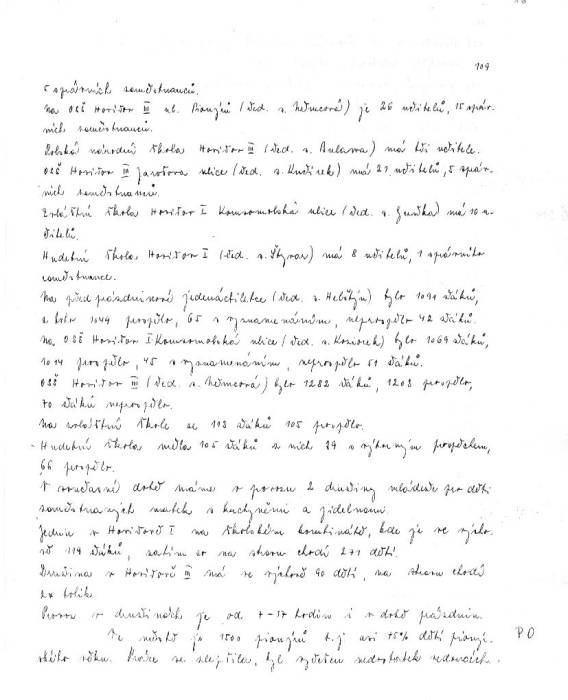 109
5 správních zaměstnanců.
Na OSŠ Havířov III ul. Pionýrů (řed. s. Němcová) je 26 učitelů, 15 správ-
ních zaměstnanců.
Polská národní škola Havířov III (řed. s. Bulawa) má tři učitele.
OSŠ Havířov III Jarošova ulice (řed. s. Kudírek) má 21 učitelů, 5 správ-
ních zaměstnanců.
Zvláštní škola Havířov I Komsomolská ulice (řed. s. ) má 10 u-
čitelů.
Hudební škola Havířov I (řed. s. Štyrar) má 8 učitelů, 1 správního
zaměstnance.
Na před prázdninové jedenáctiletce (řed. s. Hebštýn) bylo 1091 žáků,
z toho 1044 prospělo, 65 s vyznamenáním, neprospělo 42 žáků.
Na OSŠ Havířov I Komsomolská ulice (řed. s. Kosiorek) bylo 1069 žáků,
1014 prospělo, 45 s vyznamenáním, neprospělo 51 žáků.
OSŠ Havířov III (řed. s. Němcová) bylo 1282 žáků, 1208 prospělo,
70 žáků neprospělo.
Na zvláštní škole ze 113 žáků 105 prospělo.
Hudební škola měla 105 žáků z nich 29 s výborným prospěchem,
66 prospělo.
V současné době máme v provozu 2 družiny mládeže pro děti
zaměstnaných matek s kuchyněmi a jídelnami.
Jednu v Havířově I na školském kombinátě, kde je ve výcho-
vě 119 žáků, zatím co na stravu chodí 271 dětí.
Družina v Havířově III má ve výchově 90 dětí, na stravu chodí
2x tolik.
Provoz v družinách je od 7-17 hodin i v době prázdnin.
Ve městě je 1500 pionýrů t.j. asi 75% dětí pioný-
PO
rského věku. Práce se zlepšila, byl vyřešen nedostatek vedoucích.